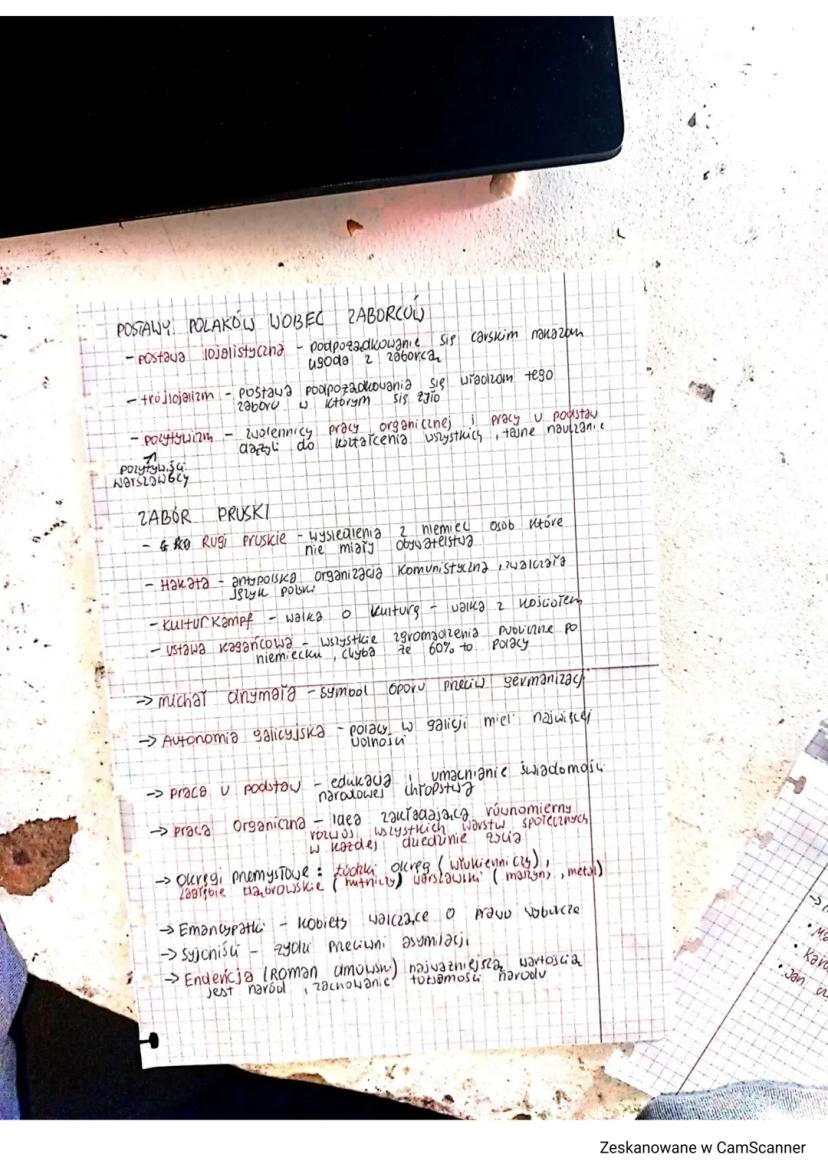 POSTAWY POLAKÓW WOBEC ZABORCÓW
- postawa lojalistyczna - podpoządkowanie się carskim nakazom
ugoda z zaborcą
- trójlojalizm - postawa podpoządkowania się władzom tego
zaboru w którym się żyło
- pozytywizm - zwolennicy pracy organicznej i pracy u podstaw
dążyli do kształcenia wszystkich, tajne nauczanie
pozytywiści
warszawscy
ZABÓR PRUSKI
- Rugi pruskie - wysiedlenia z niemiec osob które
nie miały obywatelstwa
- Hakata - antypolska organizacja komunistyczna, zwalczała
język polski
- Kulturkampf - walka o kulturę - walka z kościołem
- ustawa kagańcowa - wszystkie zgromadzenia publiczne po
niemiecku, chyba że 60% to polacy
→ michał drzymała - symbol oporu przeciw germanizacji
→ Autonomia galicyjska - polacy w galicji mieli najwięcej
wolności
→ praca u podstaw - edukacja i umacnianie świadomości
narodowej chłopstwa
→ praca organiczna - idea zakładająca równomierny
rozwój wszystkich warstw społecznych
w każdej dziedzinie życia
→ okręgi przemysłowe: łódzki okręg (włukienniczy),
zagłębie dąbrowskie (hutniczy) warszawski (maszyny, metal)
→ Emancypatki - kobiety walczące o prawo wyborcze
→ syjoniści - żydzi przeciwni asymilacji
→ Endencja (Roman dmowski) najważniejszą wartością
jest naród, zachowanie tożsamości narodu
Jan
Zeskanowane w CamScanner